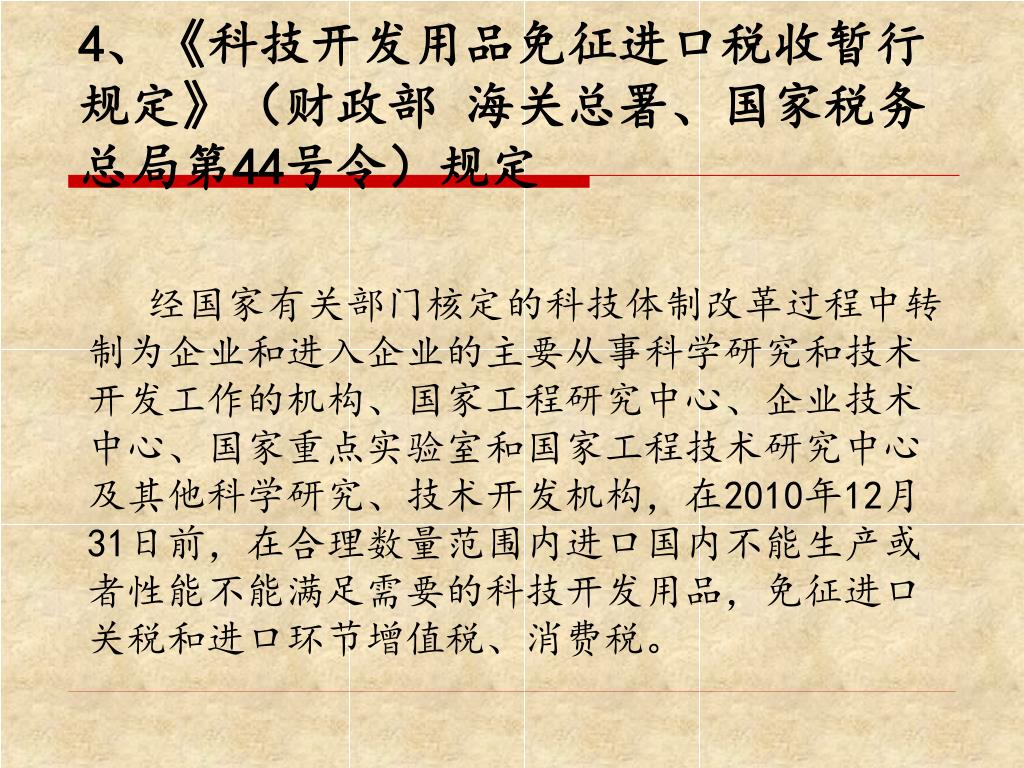 4、《科技开发用品免征进口税收暂行
规定》（财政部 海关总署、国家税务
总局第44号令）规定
经国家有关部门核定的科技体制改革过程中转
制为企业和进入企业的主要从事科学研究和技术
开发工作的机构、国家工程研究中心、企业技术
中心、国家重点实验室和国家工程技术研究中心
及其他科学研究、技术开发机构，在2010年12月
31日前，在合理数量范围内进口国内不能生产或
者性能不能满足需要的科技开发用品，免征进口
关税和进口环节增值税、消费税。